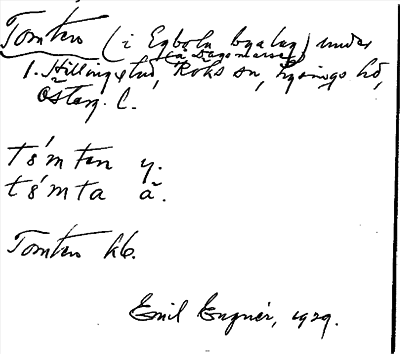 Tomten (i Egbola byalag) under
(å Dagsmarker)
1. Hillingstad, Röks sn, Lysings hd,
Österg. l.
tómten y.
tómta ã.
Tomten kb.
Emil Engnér, 1929.